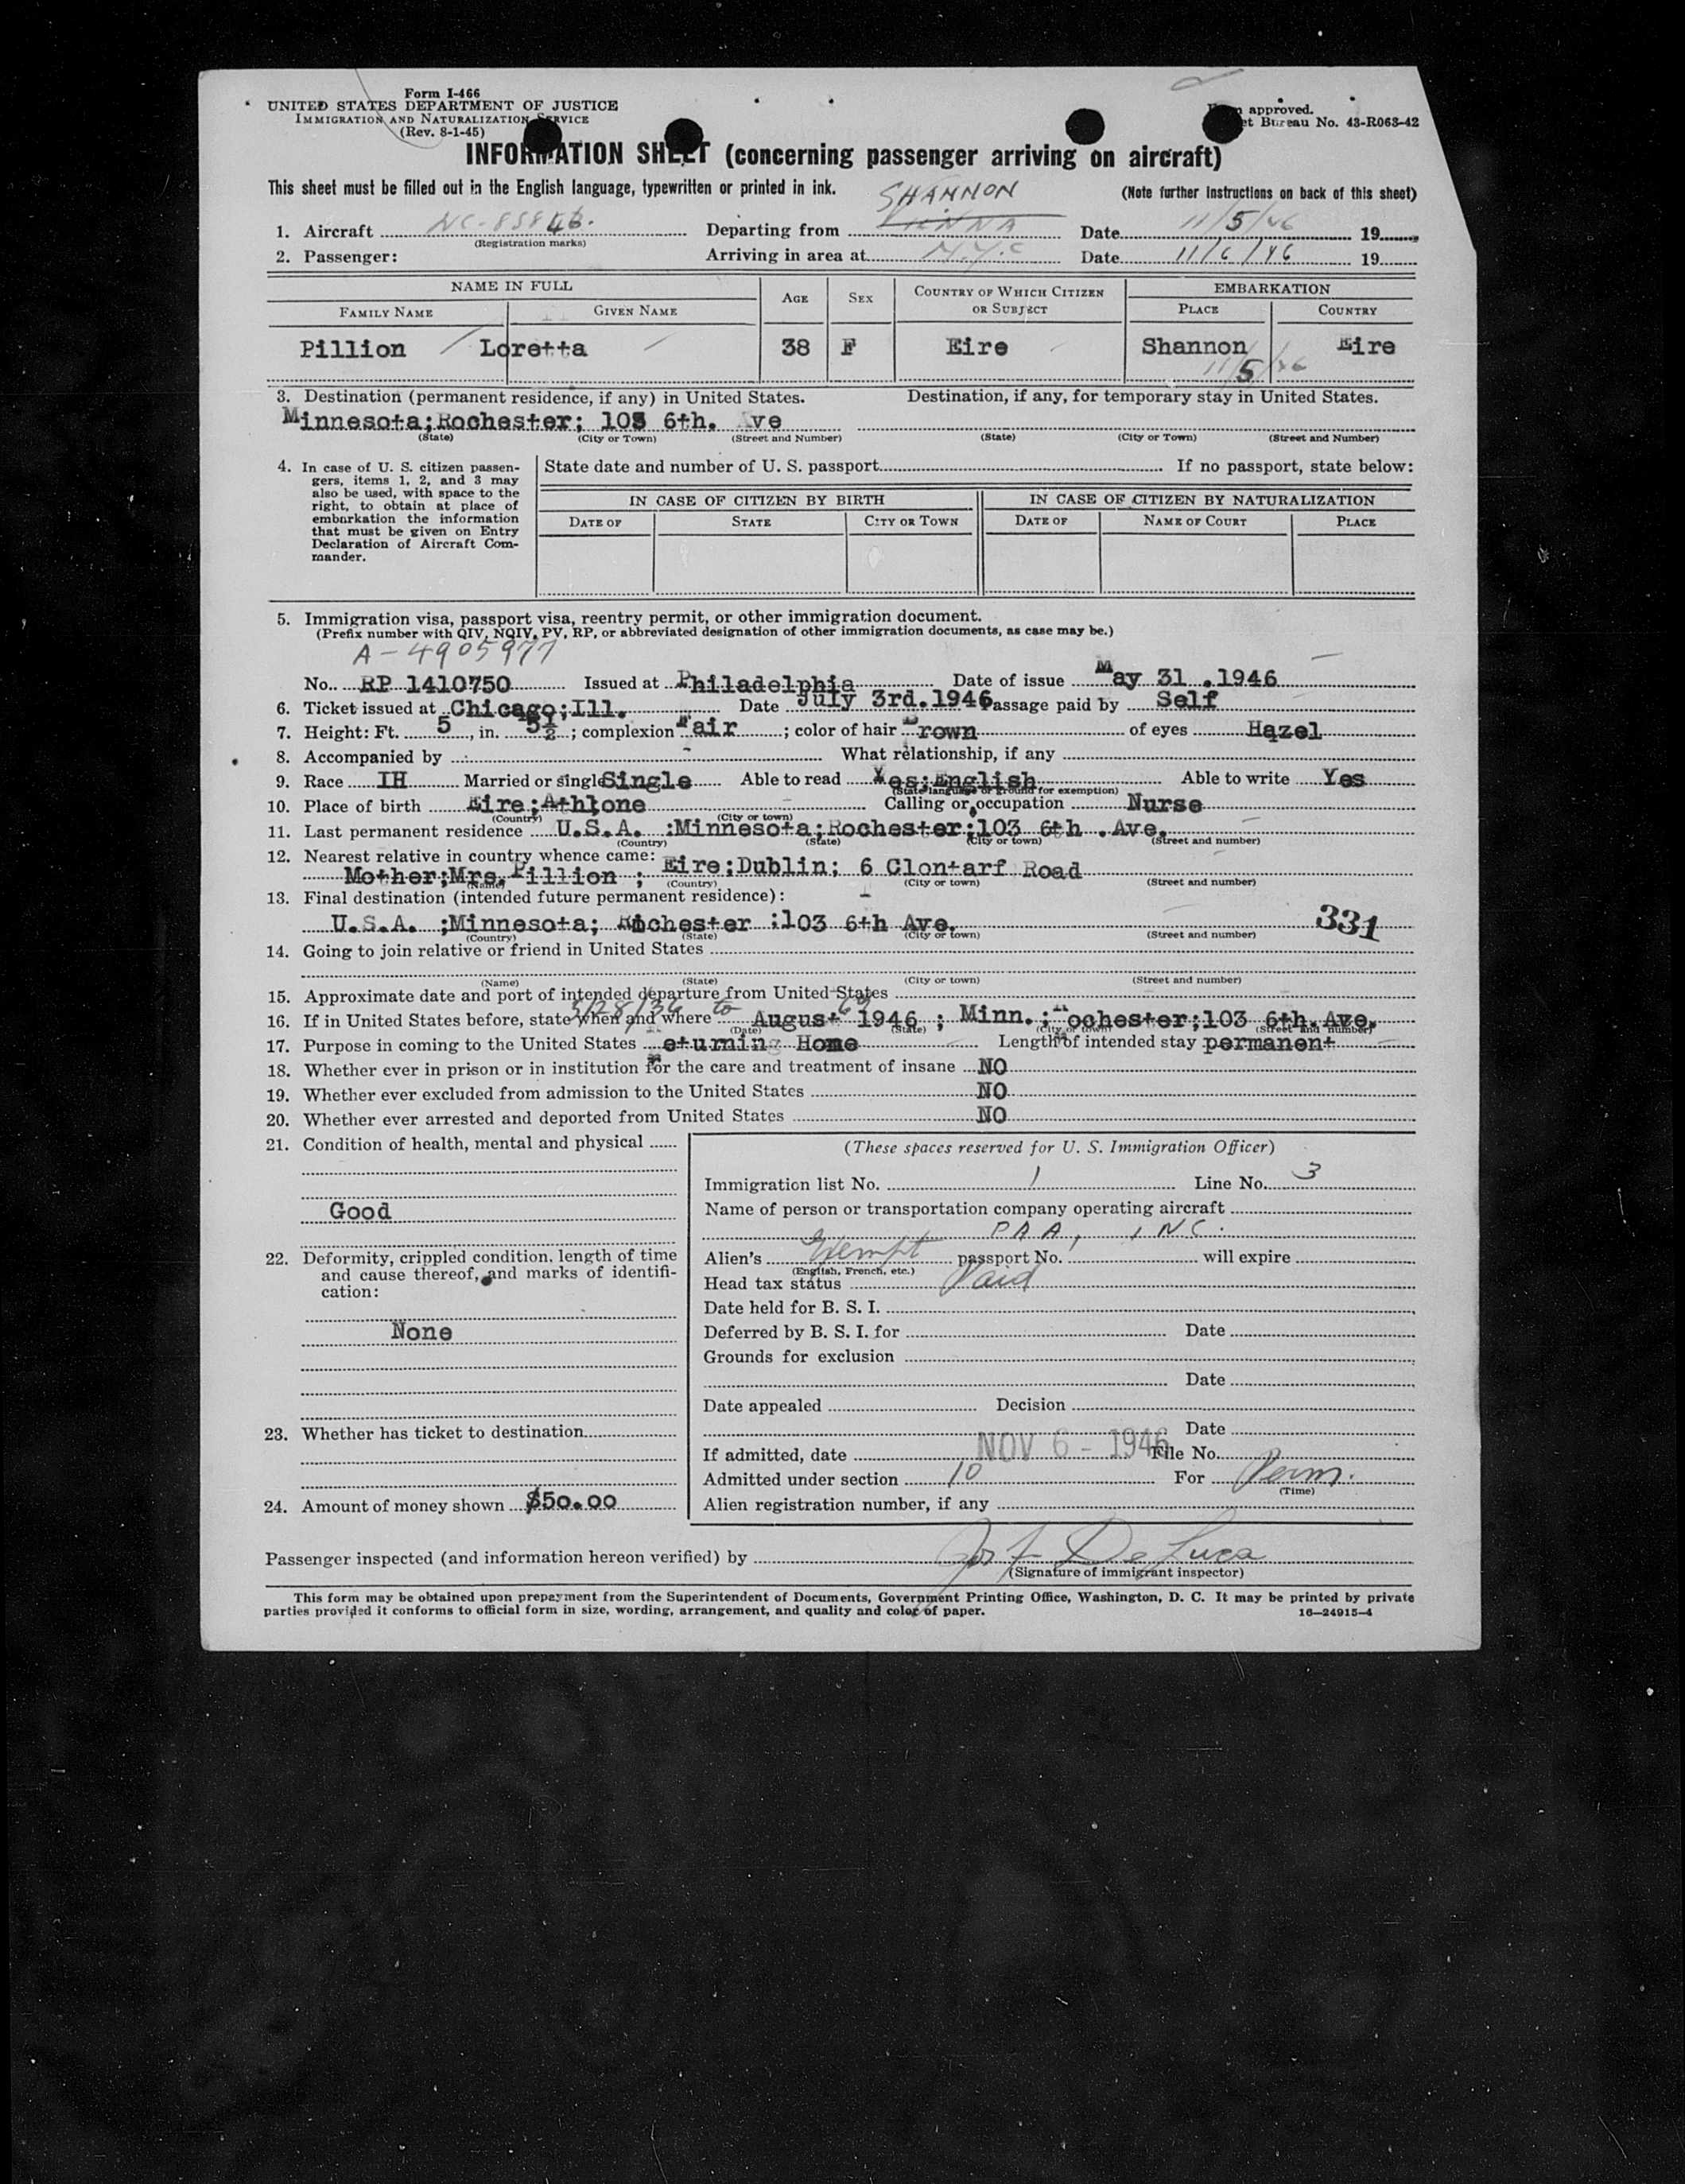 Form I-466
UNITED STATES DEPARTMENT OF JUSTICE
IMMIGRATION AND NATURALIZATION SERVICE
(Rev. 8-1-45)
approved.
et Bureau No. 43-R063-42
INFORMATION SHEET (concerning passenger arriving on aircraft)
This sheet must be filled out in the English language, typewritten or printed in ink.
(Note further instructions on back of this sheet)
SHANNON
1. Aircraft NC-88846. Departing from VIENNA Date 11/5/46 19
(Registration marks)
2. Passenger: Arriving in area at N.Y.C Date 11/6/46 19
NAME IN FULL AGE SEX COUNTRY OF WHICH CITIZEN OR SUBJECT EMBARKATION
FAMILY NAME GIVEN NAME PLACE COUNTRY
Pillion Loretta 38 F Eire Shannon Eire
11/5/46
3. Destination (permanent residence, if any) in United States. Destination, if any, for temporary stay in United States.
Minnesota;Rochester; 103 6th. Ave
(State) (City or Town) (Street and Number) (State) (City or Town) (Street and Number)
4. In case of U. S. citizen passengers, items 1, 2, and 3 may also be used, with space to the right, to obtain at place of embarkation the information that must be given on Entry Declaration of Aircraft Commander.
State date and number of U. S. passport If no passport, state below:
IN CASE OF CITIZEN BY BIRTH IN CASE OF CITIZEN BY NATURALIZATION
DATE OF STATE CITY OR TOWN DATE OF NAME OF COURT PLACE
5. Immigration visa, passport visa, reentry permit, or other immigration document.
(Prefix number with QIV, NQIV, PV, RP, or abbreviated designation of other immigration documents, as case may be.)
A-4905977
No. RP 1410750 Issued at Philadelphia Date of issue May 31 .1946
6. Ticket issued at Chicago;Ill. Date July 3rd.1946 Passage paid by Self
7. Height: Ft. 5, in. 5½; complexion Fair; color of hair Brown of eyes Hazel
8. Accompanied by - What relationship, if any
9. Race IH Married or single Single Able to read Yes;English Able to write Yes
(State language or ground for exemption)
10. Place of birth Eire;Athlone Calling or occupation Nurse
(Country) (City or town)
11. Last permanent residence U.S.A. :Minnesota;Rochester;103 6th .Ave.
(Country) (State) (City or town) (Street and number)
12. Nearest relative in country whence came:
Mother;Mrs.Pillion ; Eire;Dublin; 6 Clontarf Road
(Name) (Country) (City or town) (Street and number)
13. Final destination (intended future permanent residence):
U.S.A. ;Minnesota; Rochester ;103 6th Ave. 331
(Country) (State) (City or town) (Street and number)
14. Going to join relative or friend in United States
(Name) (State) (City or town) (Street and number)
15. Approximate date and port of intended departure from United States
16. If in United States before, state when and where to August 1946 ; Minn.;Rochester;103 6th.Ave.
(Date) (State) (City or town) (Street and number)
17. Purpose in coming to the United States returning Home Length of intended stay permanent
18. Whether ever in prison or in institution for the care and treatment of insane NO
19. Whether ever excluded from admission to the United States NO
20. Whether ever arrested and deported from United States NO
21. Condition of health, mental and physical
Good
22. Deformity, crippled condition, length of time and cause thereof, and marks of identification:
None
23. Whether has ticket to destination
24. Amount of money shown $50.00
(These spaces reserved for U. S. Immigration Officer)
Immigration list No. 1 Line No. 3
Name of person or transportation company operating aircraft
PAA, INC.
Alien's Exempt passport No. will expire
(English, French, etc.)
Head tax status Paid
Date held for B. S. I.
Deferred by B. S. I. for Date
Grounds for exclusion
Date
Date appealed Decision
Date
If admitted, date NOV 6 - 1946 File No.
Admitted under section 10 For Perm.
(Time)
Alien registration number, if any
Passenger inspected (and information hereon verified) by Jos F De Luca
(Signature of immigrant inspector)
This form may be obtained upon prepayment from the Superintendent of Documents, Government Printing Office, Washington, D. C. It may be printed by private
parties provided it conforms to official form in size, wording, arrangement, and quality and color of paper.
16—24915-4